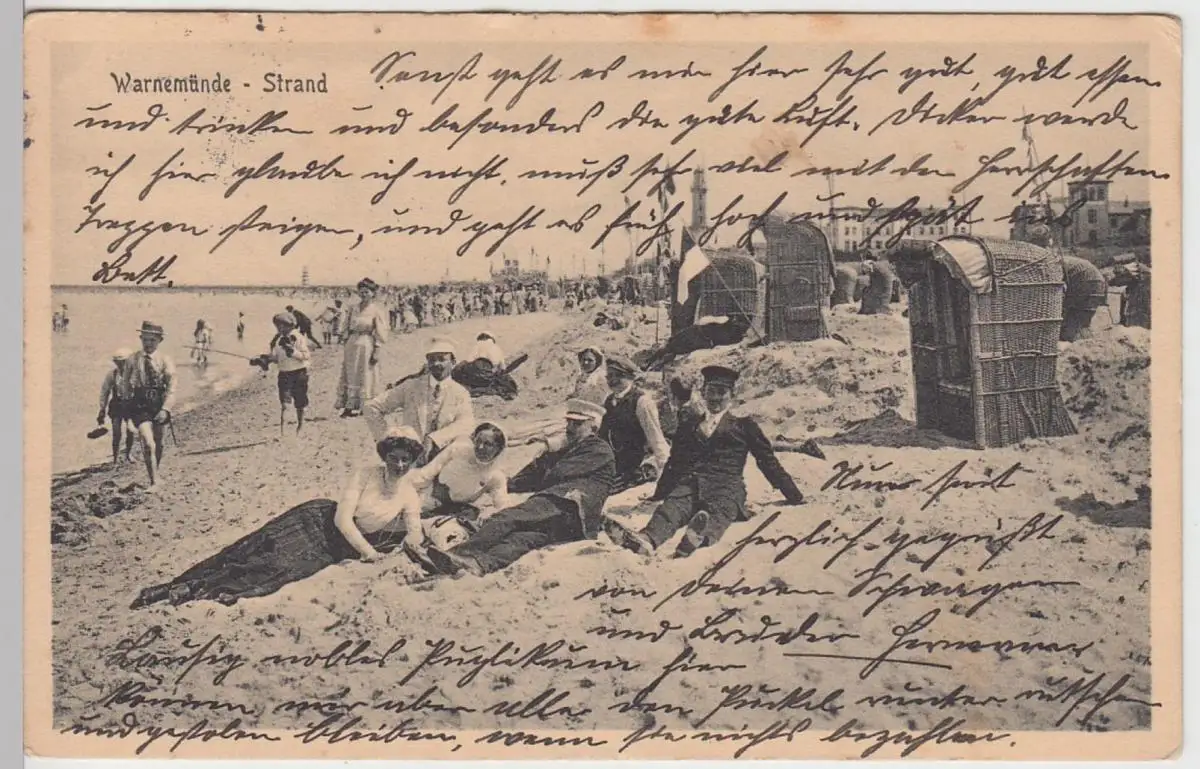 Warnemünde - Strand
Sonst geht es mir hier sehr gut, gut essen
und trinken und besonders die gute Luft. Dicker werde
ich hier glaube ich nicht, muß sehr viel mit den Herrschaften
Treppen steigen, und geht es früh hoch und spät ins
Bett.
Nun seit
herzlich gegrüßt
von deinem Schwager
und Bruder Hermann
Lausig nobles Puplikum hier
können mir aber alle den Puckel runter rutschen
und gestolen bleiben, wenn sie nichts bezahlen.